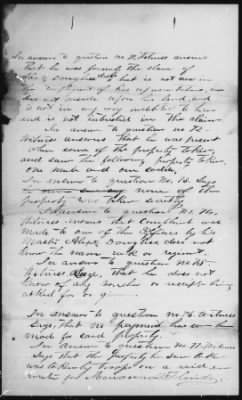 In answer to question no 11, Witness answers
that he was formerly the slave of
Douglass but is not now in
the employment of his
does not reside upon his land and
is not in any way indebted to him
and is not interested in this claim.
In answer to question no 72
Witness answers that he was present
when some of the property taken
and saw the following property taken.
One mule and one
In answer to question No. 74. Says
none of the
property was taken secretly
In answer to question No.
Witness answers that Complaint was
made to one of the Officers by his
Master Alex. Douglass does not
know name rank or regiment.
In answer to question no 75
Witness Says, that he does not
know of any voucher or receipt being
asked for or
In answer to question no 76. Witness
Says, that no payment has
made for said property.
In answer to question no 77. Witness
Says that the property he saw taken
was taken by troops on a raid